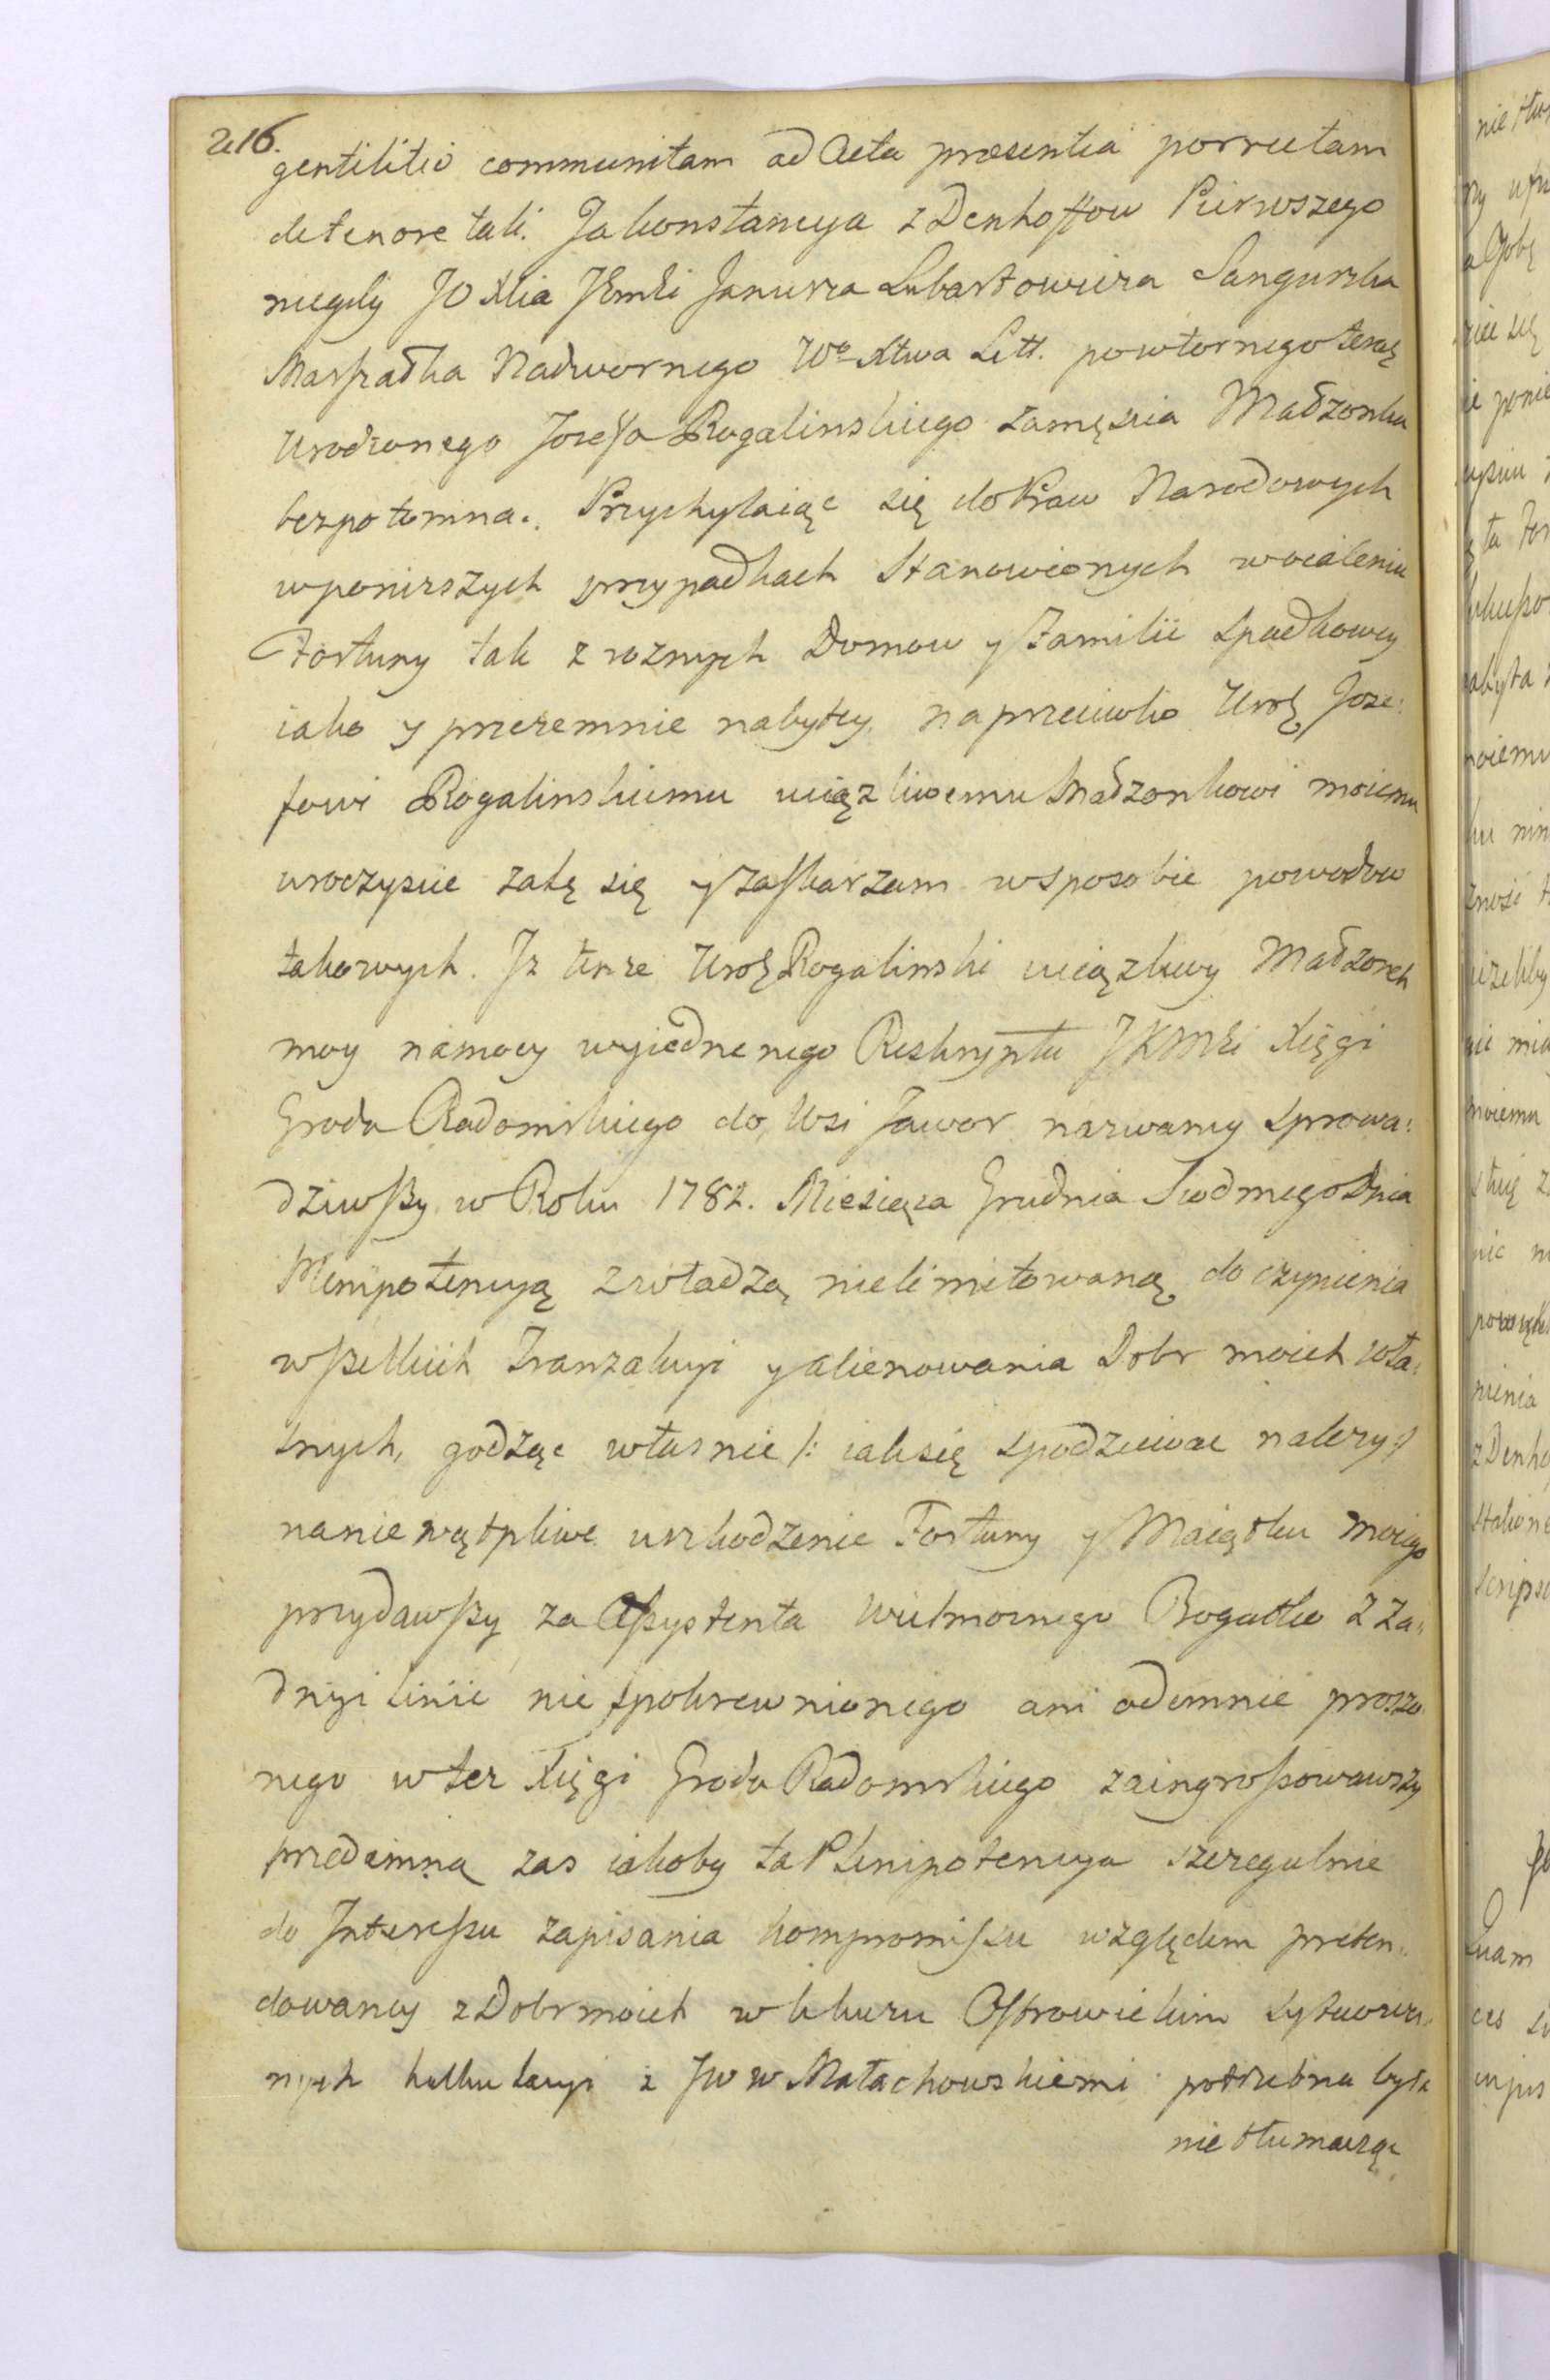 216.
gentilitio communitam ad Acta praesentia porrectam
de tenore tali. Ja Konstancya z Denhoffow Pierwszego
niegdy JO Xcia JEmści Janusza Lubartowicza Sanguszka
Marszałka Nadwornego Wo Xtwa Litt. powtornego teraz
Urodzonego Jozefa Rogalinskiego zamęscia Małzonka
bezpotomna. Przychylaiąc się do Praw Narodowych
w ponizszych przypadkach stanowionych w ocaleniu
Fortuny tak z roznych Domow y Familii spadkowey
iako y przezemnie nabytey naprzeciwko Urodz Joze:
fowi Rogalinskiemu uciązliwemu Małzonkowi moiemu
uroczyscie załę się y zaskarzam w sposobie powodow
takowych. Jz tenze Urodz Rogalinski uciązliwy Małzonek
moy na mocy wyiednanego Reskryptu JKMści Xięgi
Grodu Radomskiego do Wsi Jawor nazwaney sprowa:
dziwszy w Roku 1782. Miesiąca Grudnia Siodmego Dnia
Plenipotencyą z władzą nielimitowaną do czynienia
wszelkich Tranzakcyi y alienowania Dobr moich wła:
snych, godząc własnie /: iak się spodziewac nalezy :/
na niewątpliwe uszkodzenie Fortuny y Maiątku moiego
przydawszy za Assystenta Wielmoznego Bogatko z za:
dnyi linii nie spokrewnionego ani odemnie proszo:
nego w tez Xięgi Grodu Radomskiego zaingrossowawszy
przedemną zas iakoby ta Plenipotencya szczegulnie
do Interessu zapisania kompromissu względem preten:
dowaney z Dobr moich w Kluczu Ostrowieckim sytuowa:
nych kalkulacyi z JWW Małachowskiemi potrzebna była
nie tłumacząc